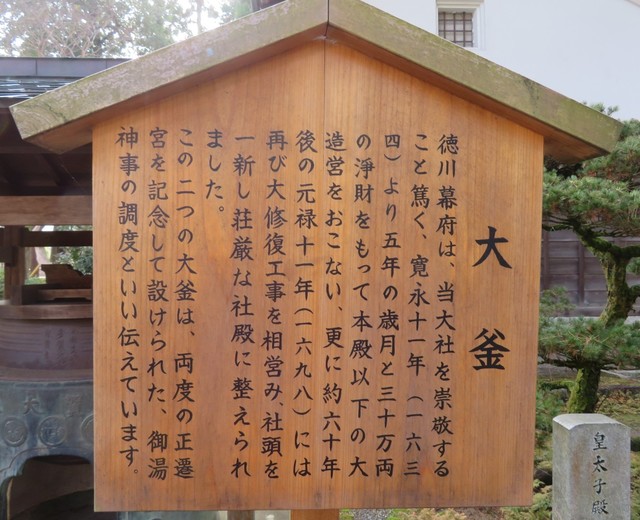 大釜
徳川幕府は、当大社を崇敬する
こと篤く、寛永十一年(一六三
四)より五年の歳月と三十万両
の淨財をもって本殿以下の大
造営をおこない、更に約六十年
後の元禄十一年(一六九八)には
再び大修復工事を相営み、社頭を
一新し荘厳な社殿に整えられ
ました。
この二つの大釜は、両度の正遷
宮を記念して設けられた、御湯
神事の調度といい伝えています。
皇太子殿